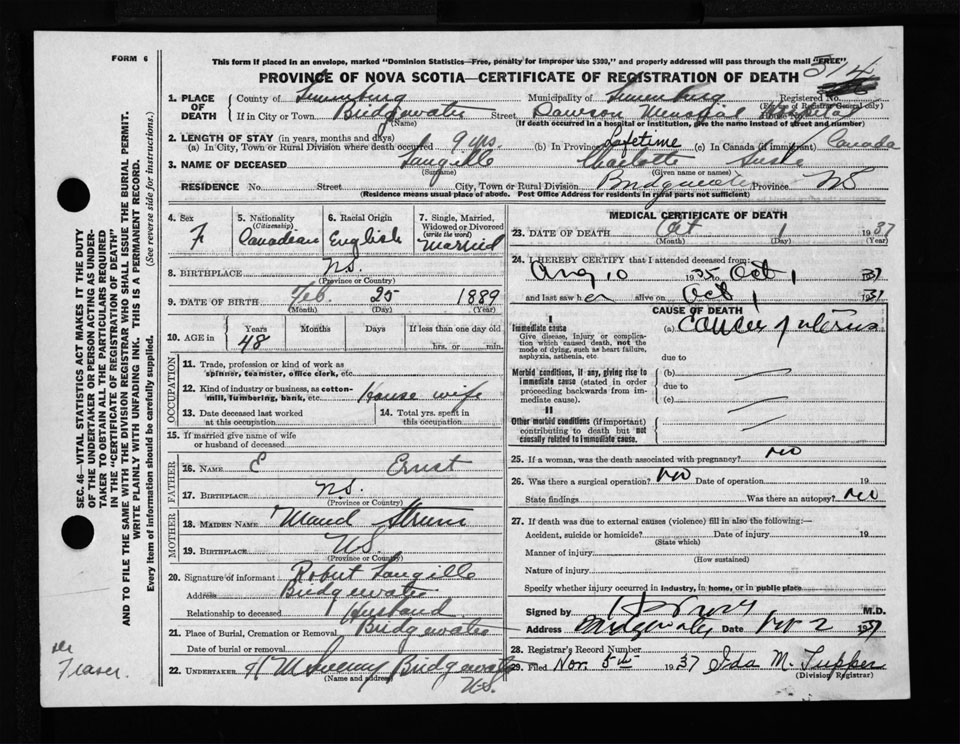 FORM 6
This form if placed in an envelope, marked "Dominion Statistics—Free, penalty for improper use $300," and properly addressed will pass through the mail "FREE"
PROVINCE OF NOVA SCOTIA—CERTIFICATE OF REGISTRATION OF DEATH 574
1. PLACE OF DEATH County of Lunenburg Municipality of Lunenburg Registered No.
(For use of Registrar General only)
If in City or Town Bridgewater Street Dawson Memorial Hospital
(Name) (If death occurred in a hospital or institution, give the name instead of street and number)
2. LENGTH OF STAY (in years, months and days)
(a) In City, Town or Rural Division where death occurred 9 yrs. (b) In Province Lifetime (c) In Canada (if immigrant) Canada
3. NAME OF DECEASED Langille Charlotte Susie
(Surname) (Given name or names)
RESIDENCE No. Street City, Town or Rural Division Bridgewater Province NS
(Residence means usual place of abode. Post Office Address for residents in rural parts not sufficient)
4. Sex F
5. Nationality (Citizenship) Canadian
6. Racial Origin English
7. Single, Married, Widowed or Divorced (write the word) Married
8. BIRTHPLACE N.S.
(Province or Country)
9. DATE OF BIRTH Feb. 25 1889
(Month) (Day) (Year)
10. AGE in Years 48 Months Days If less than one day old
hrs. or min.
OCCUPATION
11. Trade, profession or kind of work as spinner, teamster, office clerk, etc.
12. Kind of industry or business, as cotton-mill, lumbering, bank, etc. House wife
13. Date deceased last worked at this occupation
14. Total yrs. spent in this occupation
15. If married give name of wife or husband of deceased
FATHER
16. NAME E Ernst
17. BIRTHPLACE N.S.
(Province or Country)
MOTHER
18. MAIDEN NAME Maud Strum
19. BIRTHPLACE NS.
(Province or Country)
20. Signature of informant Robert Langille
Address Bridgewater
Relationship to deceased Husband
21. Place of Burial, Cremation or Removal Bridgewater
Date of burial or removal
22. UNDERTAKER Bridgewater
(Name and address) N.S.
MEDICAL CERTIFICATE OF DEATH
23. DATE OF DEATH Oct 1 1937
(Month) (Day) (Year)
24. I HEREBY CERTIFY that I attended deceased from:
Aug 10 1935 to Oct 1 1937
and last saw her alive on Oct 1 1937
CAUSE OF DEATH
I
Immediate cause (a) Cancer of uterus
Give disease, injury or complication which caused death, not the mode of dying, such as heart failure, asphyxia, asthenia, etc.
due to
Morbid conditions, if any, giving rise to immediate cause (stated in order proceeding backwards from immediate cause).
(b)
due to
(c)
II
Other morbid conditions (if important) contributing to death but not causally related to immediate cause.
25. If a woman, was the death associated with pregnancy? no
26. Was there a surgical operation? no Date of operation 19
State findings Was there an autopsy? no
27. If death was due to external causes (violence) fill in also the following:—
Accident, suicide or homicide? Date of injury 19
(State which)
Manner of injury
(How sustained)
Nature of injury
Specify whether injury occurred in industry, in home, or in public place
Signed by M.D.
Address Bridgewater Date Nov 2 1937
28. Registrar's Record Number
29. Filed Nov. 5th 1937 Ida M. Tupper
(Division Registrar)
SEC. 46—VITAL STATISTICS ACT MAKES IT THE DUTY OF THE UNDERTAKER OR PERSON ACTING AS UNDERTAKER TO OBTAIN ALL THE PARTICULARS REQUIRED IN THE "CERTIFICATE OF REGISTRATION OF DEATH" AND TO FILE THE SAME WITH THE DIVISION REGISTRAR WHO SHALL ISSUE THE BURIAL PERMIT.
WRITE PLAINLY WITH UNFADING INK. THIS IS A PERMANENT RECORD.
Every item of information should be carefully supplied. (See reverse side for instructions.)
Fraser.